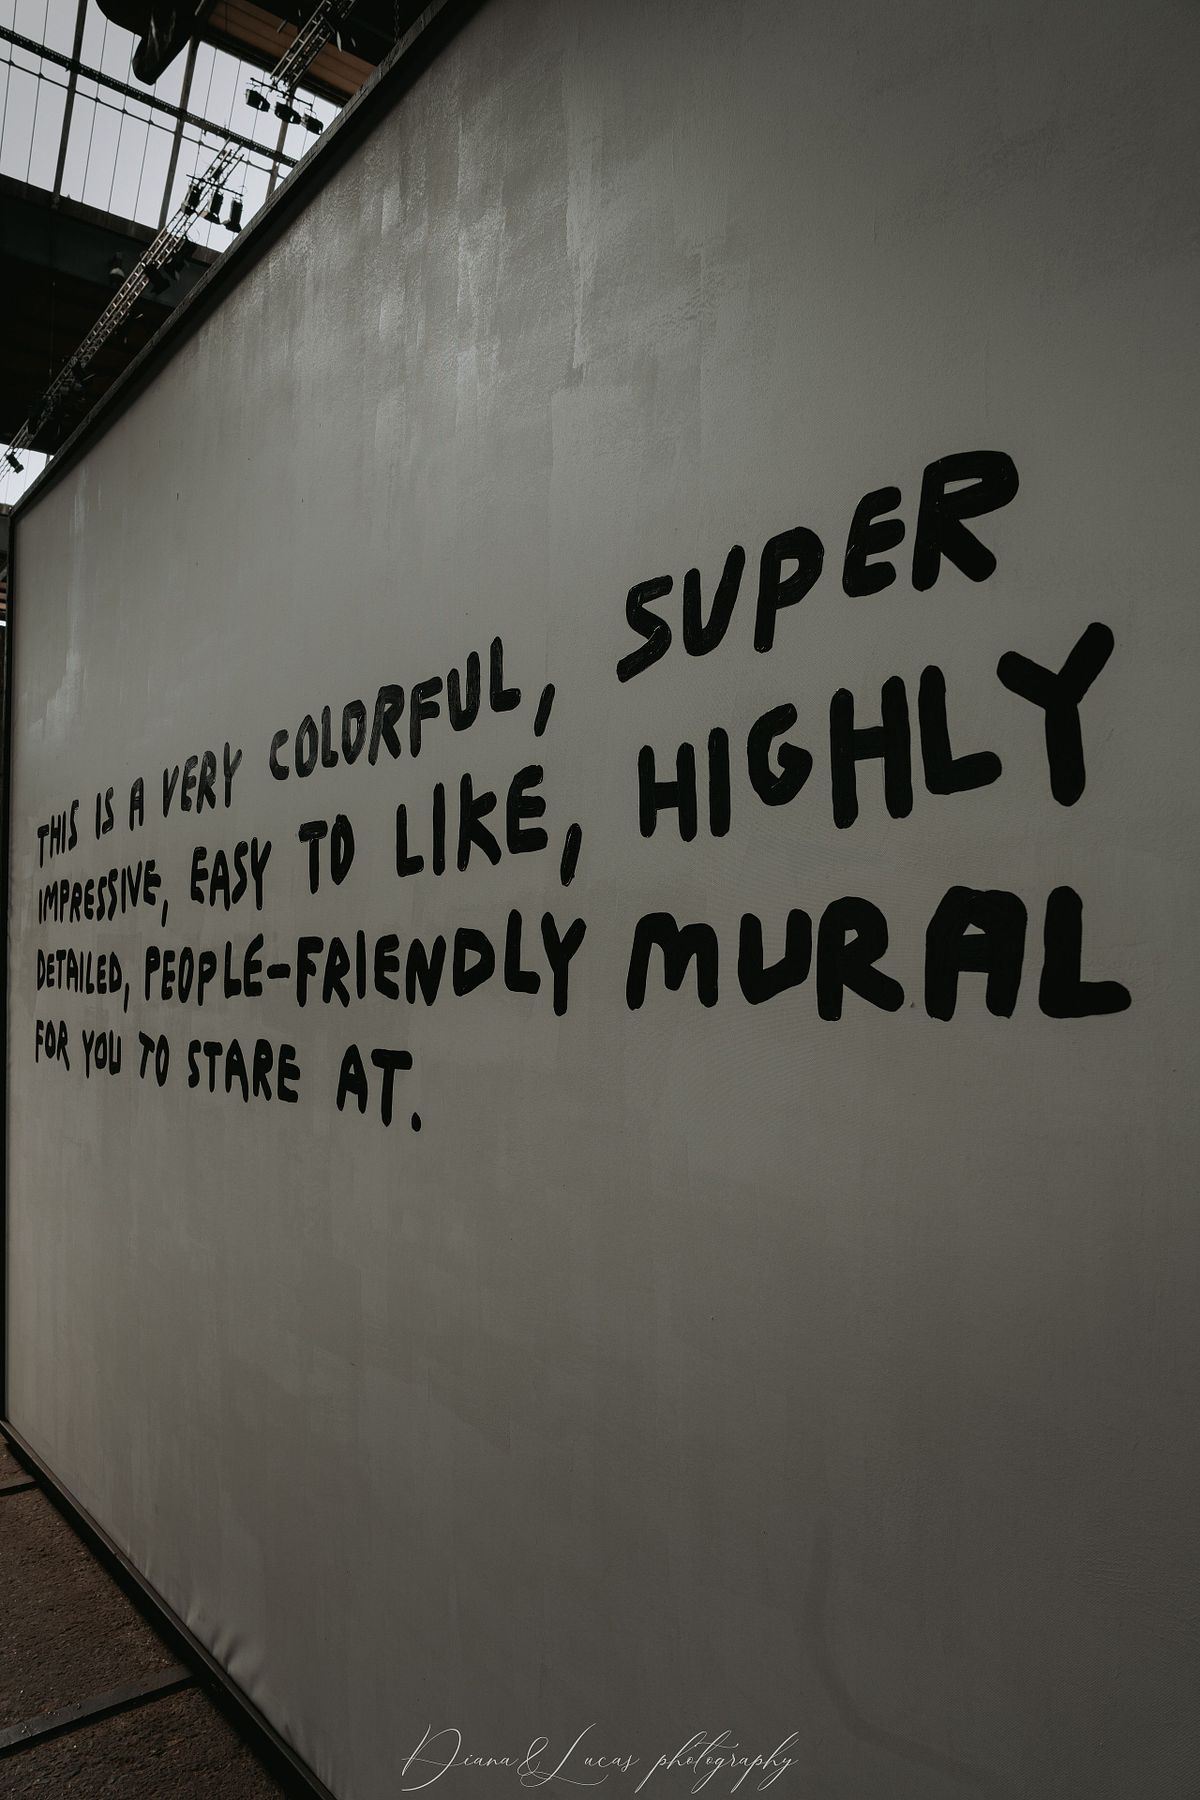 THIS IS A VERY COLORFUL, SUPER
IMPRESSIVE, EASY TO LIKE, HIGHLY
DETAILED, PEOPLE-FRIENDLY MURAL
FOR YOU TO STARE AT.
Diana & Lucas photography